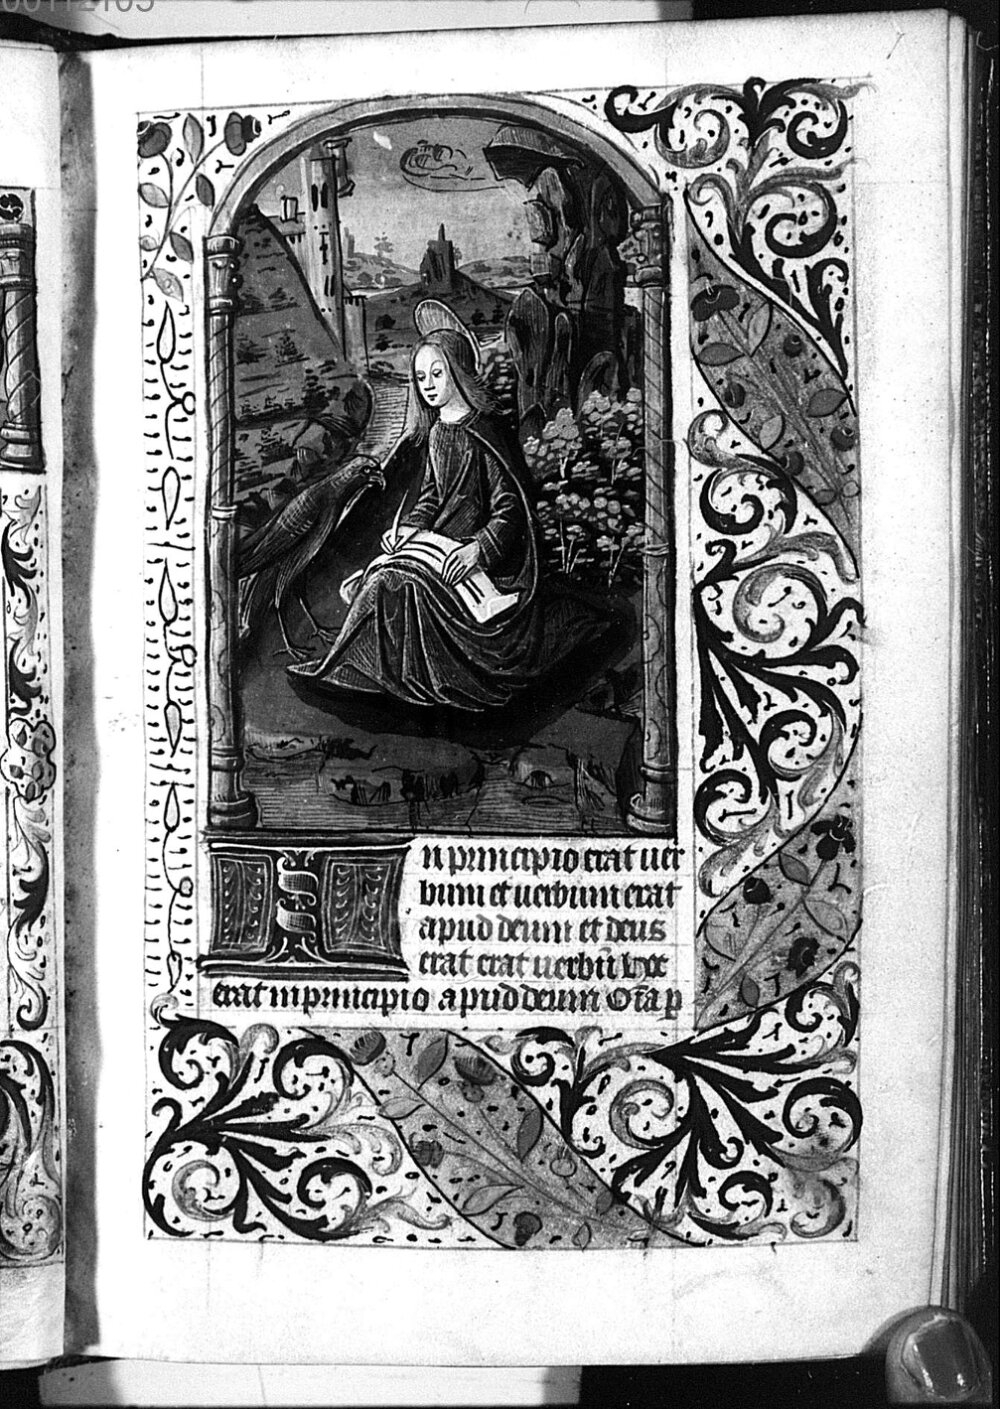 00112105
In principio erat uer
bum et uerbum erat
apud deum et deus
erat erat uerbū hoc
erat in principio apud deum Oīa p